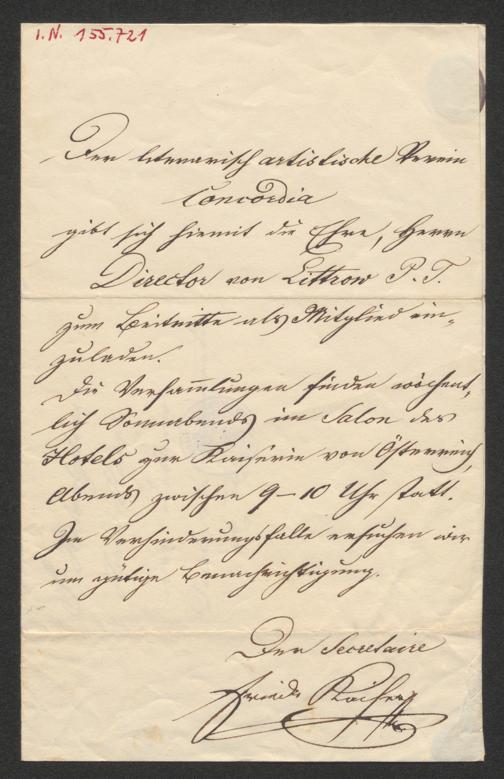 I. N. 155.721
Der literarisch artistische Verein
Concordia
gibt sich hiemit die Ehre, Herrn
Director von Littrow P. T.
zum Beitritte als Mitglied ein-
zuladen.
Die Versam̅lungen finden wöchent-
lich Sonnabends im Salon des
Hotels zur Kaiserin von Österreich,
Abends zwischen 9–10 Uhr statt.
Im Verhinderungsfalle ersuchen wir
um gütige Benachrichtigung.
Der Secretaire
Friedr Kaiser